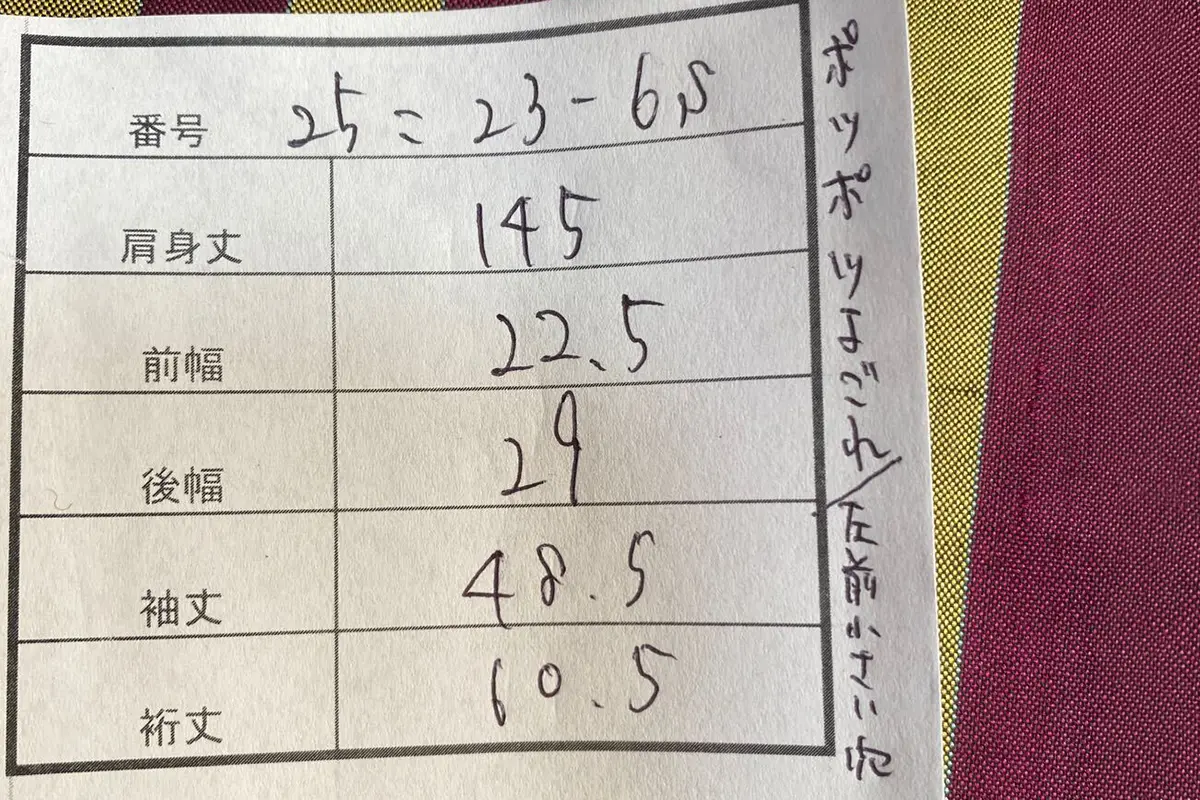 番号 25=23-6,5
肩身丈 145
前幅 22.5
後幅 29
袖丈 48.5
裄丈 60.5
ポツポツよごれ/左前小さい穴